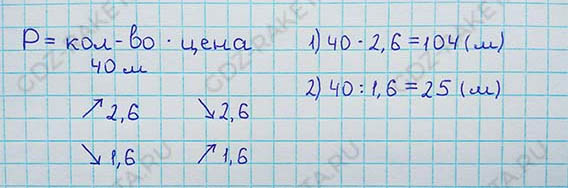 P = кол-во · цена
40 м
↗ 2,6 ↘ 2,6
↘ 1,6 ↗ 1,6
1) 40 · 2,6 = 104 (м)
2) 40 : 1,6 = 25 (м)